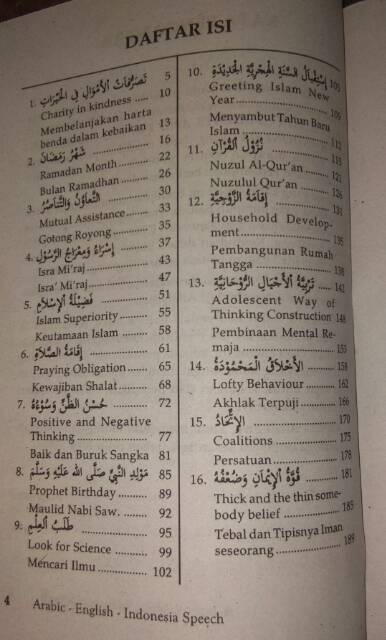 DAFTAR ISI
1. تَصَرُّفَاتُ الْأَمْوَالِ فِي الْخَيْرَاتِ 5
Charity in kindness .... 10
Membelanjakan harta
benda dalam kebaikan 13
2. شَهْرُ رَمَضَانَ ............ 16
Ramadan Month ....... 22
Bulan Ramadhan ....... 26
3. التَّعَاوُنُ وَالتَّنَاصُرُ ...... 30
Mutual Assistance ...... 33
Gotong Royong ......... 35
4. إِسْرَاءُ وَمِعْرَاجُ الرَّسُوْلِ . 37
Isra Mi'raj ................. 43
Isra' Mi'raj ................ 47
5. فَضِيْلَةُ الْإِسْلَامِ ......... 51
Islam Superiority ....... 55
Keutamaan Islam ....... 58
6. إِقَامَةُ الصَّلَاةِ ............ 61
Praying Obligation .... 65
Kewajiban Shalat ....... 68
7. حُسْنُ الظَّنِّ وَسُوْءُهُ ..... 72
Positive and Negative
Thinking ................... 77
Baik dan Buruk Sangka 81
8. مَوْلِدِ النَّبِيِّ صَلَّى اللهُ عَلَيْهِ وَسَلَّمَ 85
Prophet Birthday ....... 89
Maulid Nabi Saw. ...... 92
9. طَلَبُ الْعِلْمِ .............. 95
Look for Science ........ 99
Mencari Ilmu ............ 102
10. إِسْتِقْبَالُ السَّنَةِ الْهِجْرِيَّةِ الْجَدِيْدَةِ 105
Greeting Islam New
Year ...........................
Menyambut Tahun Baru
Islam ......................... 112
11. نُزُوْلُ الْقُرْآنِ ............. 115
Nuzul Al-Qur'an ........ 121
Nuzulul Qur'an .......... 126
12. إِقَامَةُ الزَّوْجِيَّةِ ........... 131
Household Develop-
ment .......................... 135
Pembangunan Rumah
Tangga ...................... 138
13. تَرْبِيَةُ الْأَجْيَالِ الرُّوْحَانِيَّةِ .. 141
Adolescent Way of
Thinking Construction 148
Pembinaan Mental Re-
maja .......................... 153
14. الْأَخْلَاقُ الْمَحْمُوْدَةُ ...... 158
Lofty Behaviour ........ 162
Akhlak Terpuji .......... 166
15. الْإِتِّحَادُ .................. 170
Coalitions .................. 175
Persatuan .................. 178
16. قُوَّةُ الْإِيْمَانِ وَضُعْفُهُ ..... 181
Thick and the thin some-
body belief ................ 185
Tebal dan Tipisnya Iman
seseorang .................. 189
4 Arabic - English - Indonesia Speech